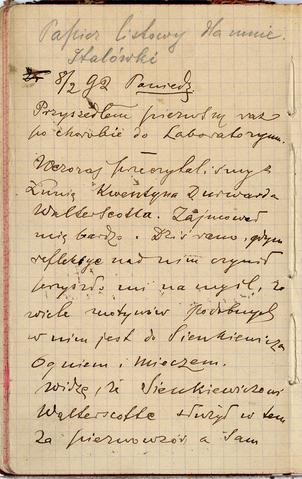 Papier listowy dla mnie.
Stalówki
8/2 92 Poniedz.
Przyszedłem pierwszy raz
po chorobie do Laboratoryum.
Wczoraj przeczytaliśmy z
Zunią Kwentyna Durwarda
Walterscotta. Zajmował
mię bardzo. Dziś rano, gdym
refleksye nad nim czynił
przyszło mi na myśl, że
wiele motywów podobnych
w nim jest do Sienkiewicza
Ogniem i Mieczem.
Widzę, że Sienkiewiczowi
Walterscotta służył w tem
za pierwowzór a Sam